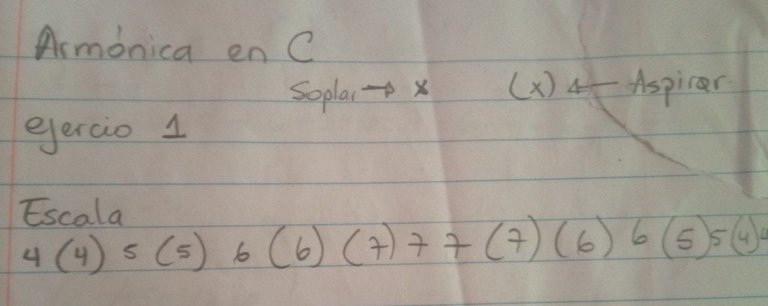 Armónica en C
Soplar → x (x) ← Aspirar
ejercio 1
Escala
4 (4) 5 (5) 6 (6) (7) 7 7 (7) (6) 6 (5) 5 (4) 4